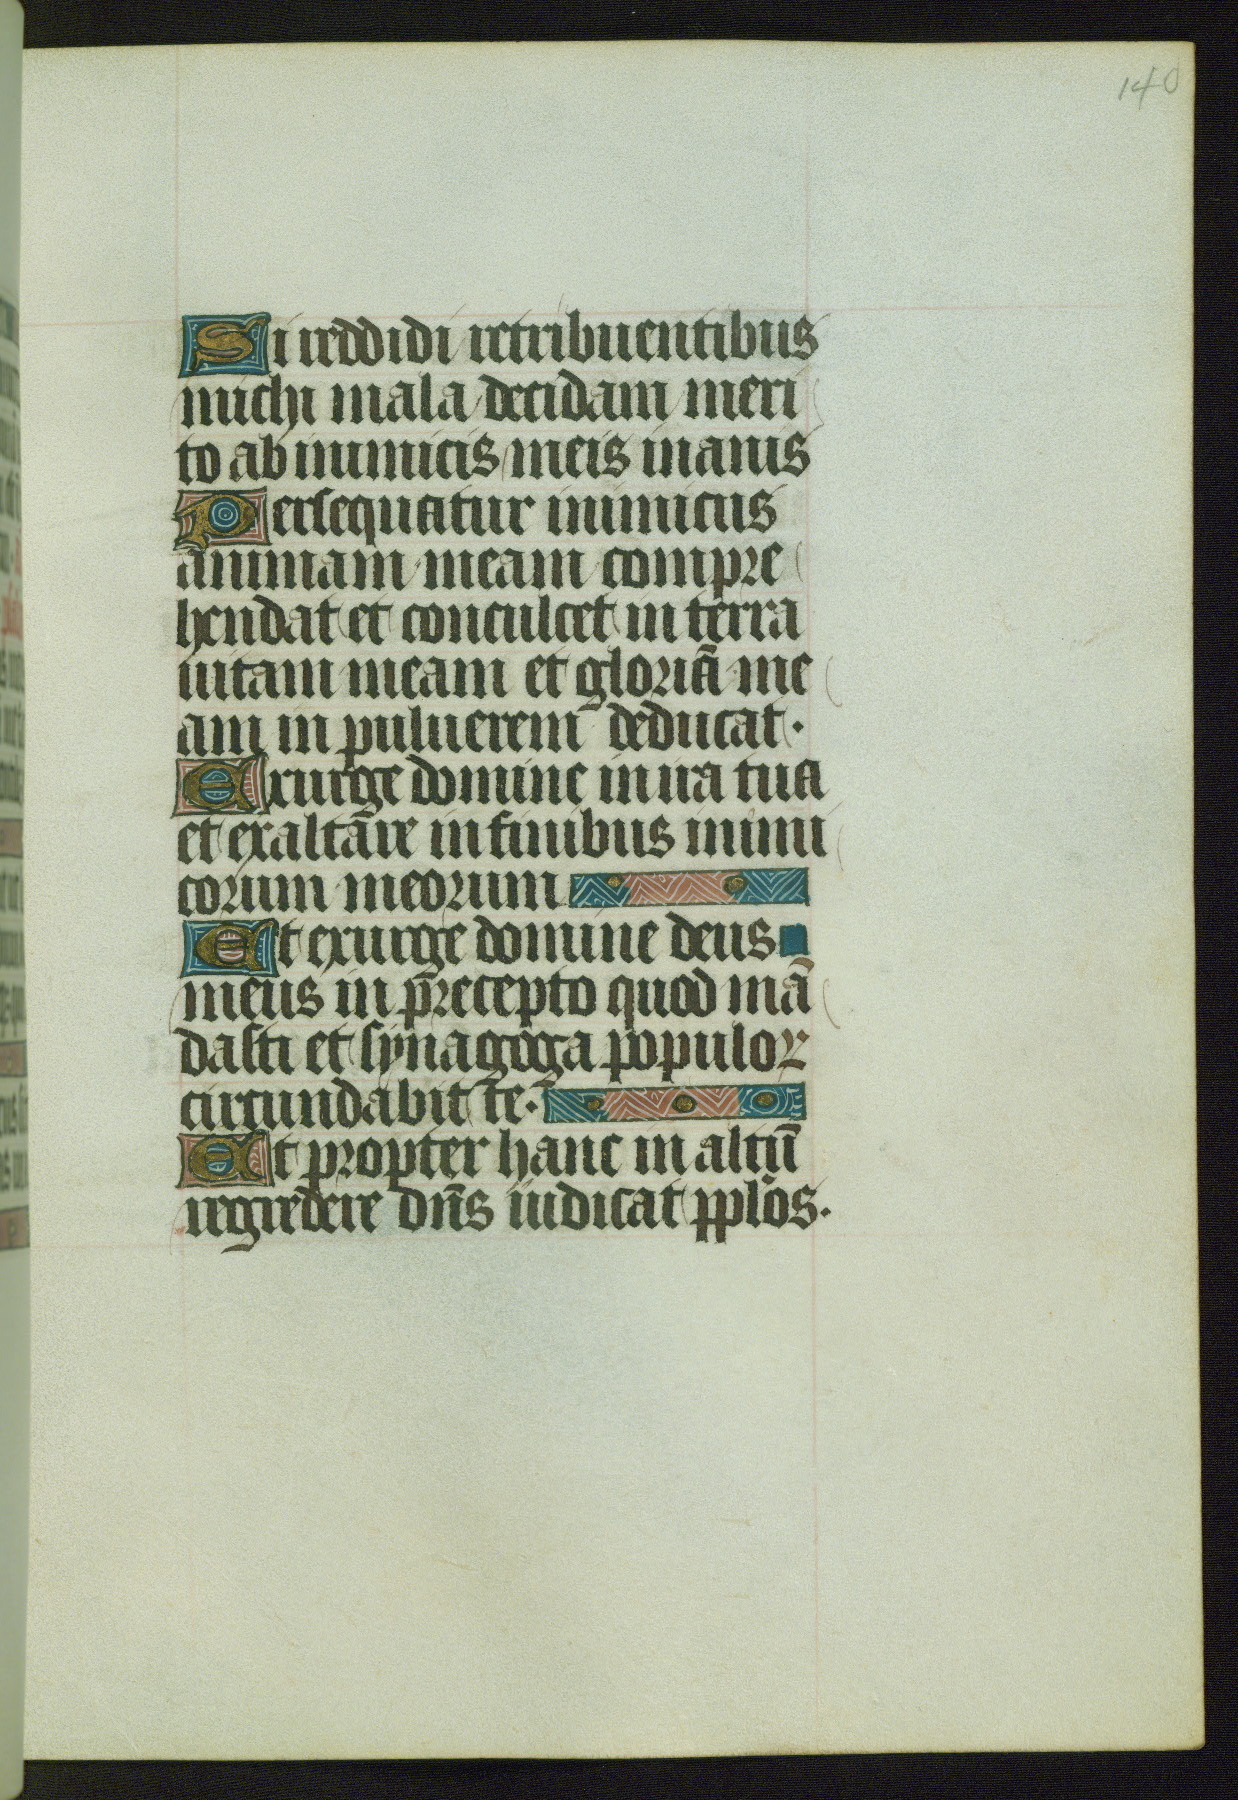 140
Si reddidi retribuentibus
michi mala decidam meri
to ab inimicis meis inanis
Persequatur inimicus
animam meam compre
hendat et conculcet in terra
uitam meam et gloriā me
am in puluerem deducat·
Exurge domine in ira tua
et exaltāre in finibus inimi
corum meorum
Et exurge domine deus
meus in p̄recepto quod mā
dasti et synagoga populoꝝ
circundabit te·
Et propter hanc in altū
regredere dn̄s iudicat pplos.